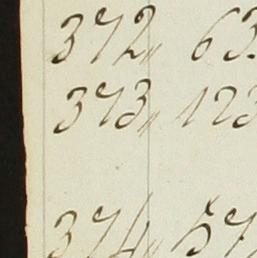 372 " 63.
373 " 123
374 " 57